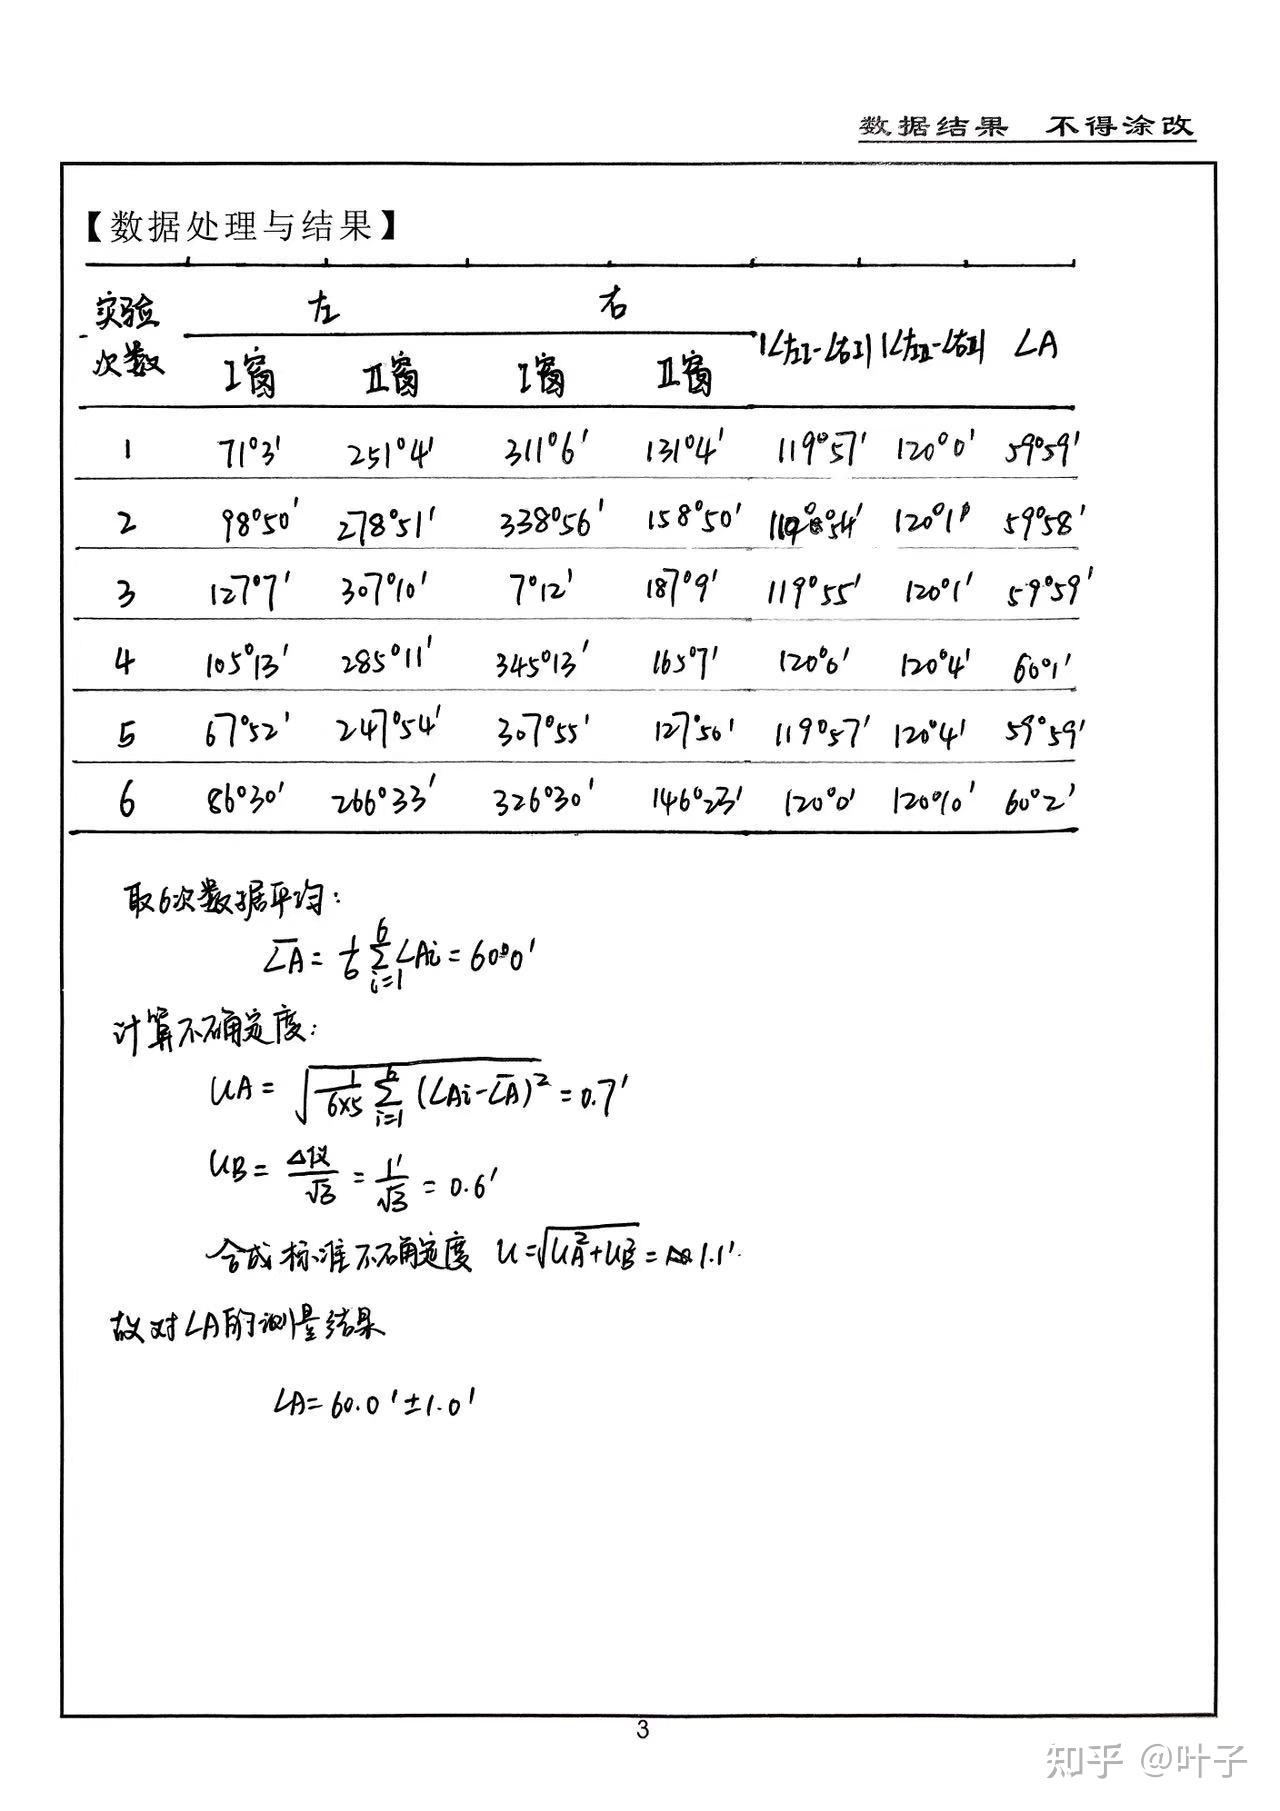 数据结果 不得涂改
【数据处理与结果】
实验次数 左 右 |∠左I-∠右I| |∠左II-∠右II| ∠A
I窗 II窗 I窗 II窗
1 71°3′ 251°4′ 311°6′ 131°4′ 119°57′ 120°0′ 59°59′
2 98°50′ 278°51′ 338°56′ 158°50′ 119°54′ 120°1′ 59°58′
3 127°7′ 307°10′ 7°12′ 187°9′ 119°55′ 120°1′ 59°59′
4 105°13′ 285°11′ 345°13′ 165°7′ 120°0′ 120°4′ 60°1′
5 67°52′ 247°54′ 307°55′ 127°50′ 119°57′ 120°4′ 59°59′
6 86°30′ 266°33′ 326°30′ 146°23′ 120°0′ 120°10′ 60°2′
取6次数据平均:
∠A̅ = 1/6 Σ(i=1→6) ∠Ai = 60°0′
计算不确定度:
UA = √(1/(6×5) Σ(i=1→6) (∠Ai-∠A̅)²) = 0.7′
UB = Δ仪/√3 = 1′/√3 = 0.6′
合成标准不确定度 U=√(UA²+UB²) = 1.1′.
故对∠A的测量结果
∠A = 60.0′±1.0′
3
知乎 @叶子